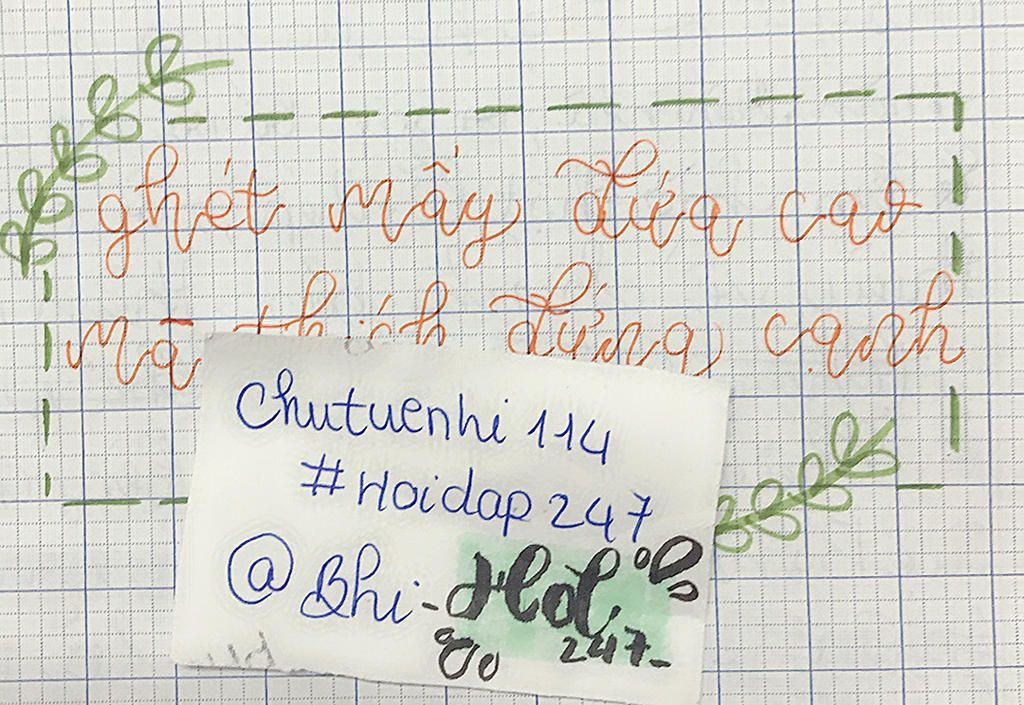 ghét mấy đứa cao
mà thích đứng cạnh
Chutuenhi 114
#Hoidap247
@Bhi-
247-